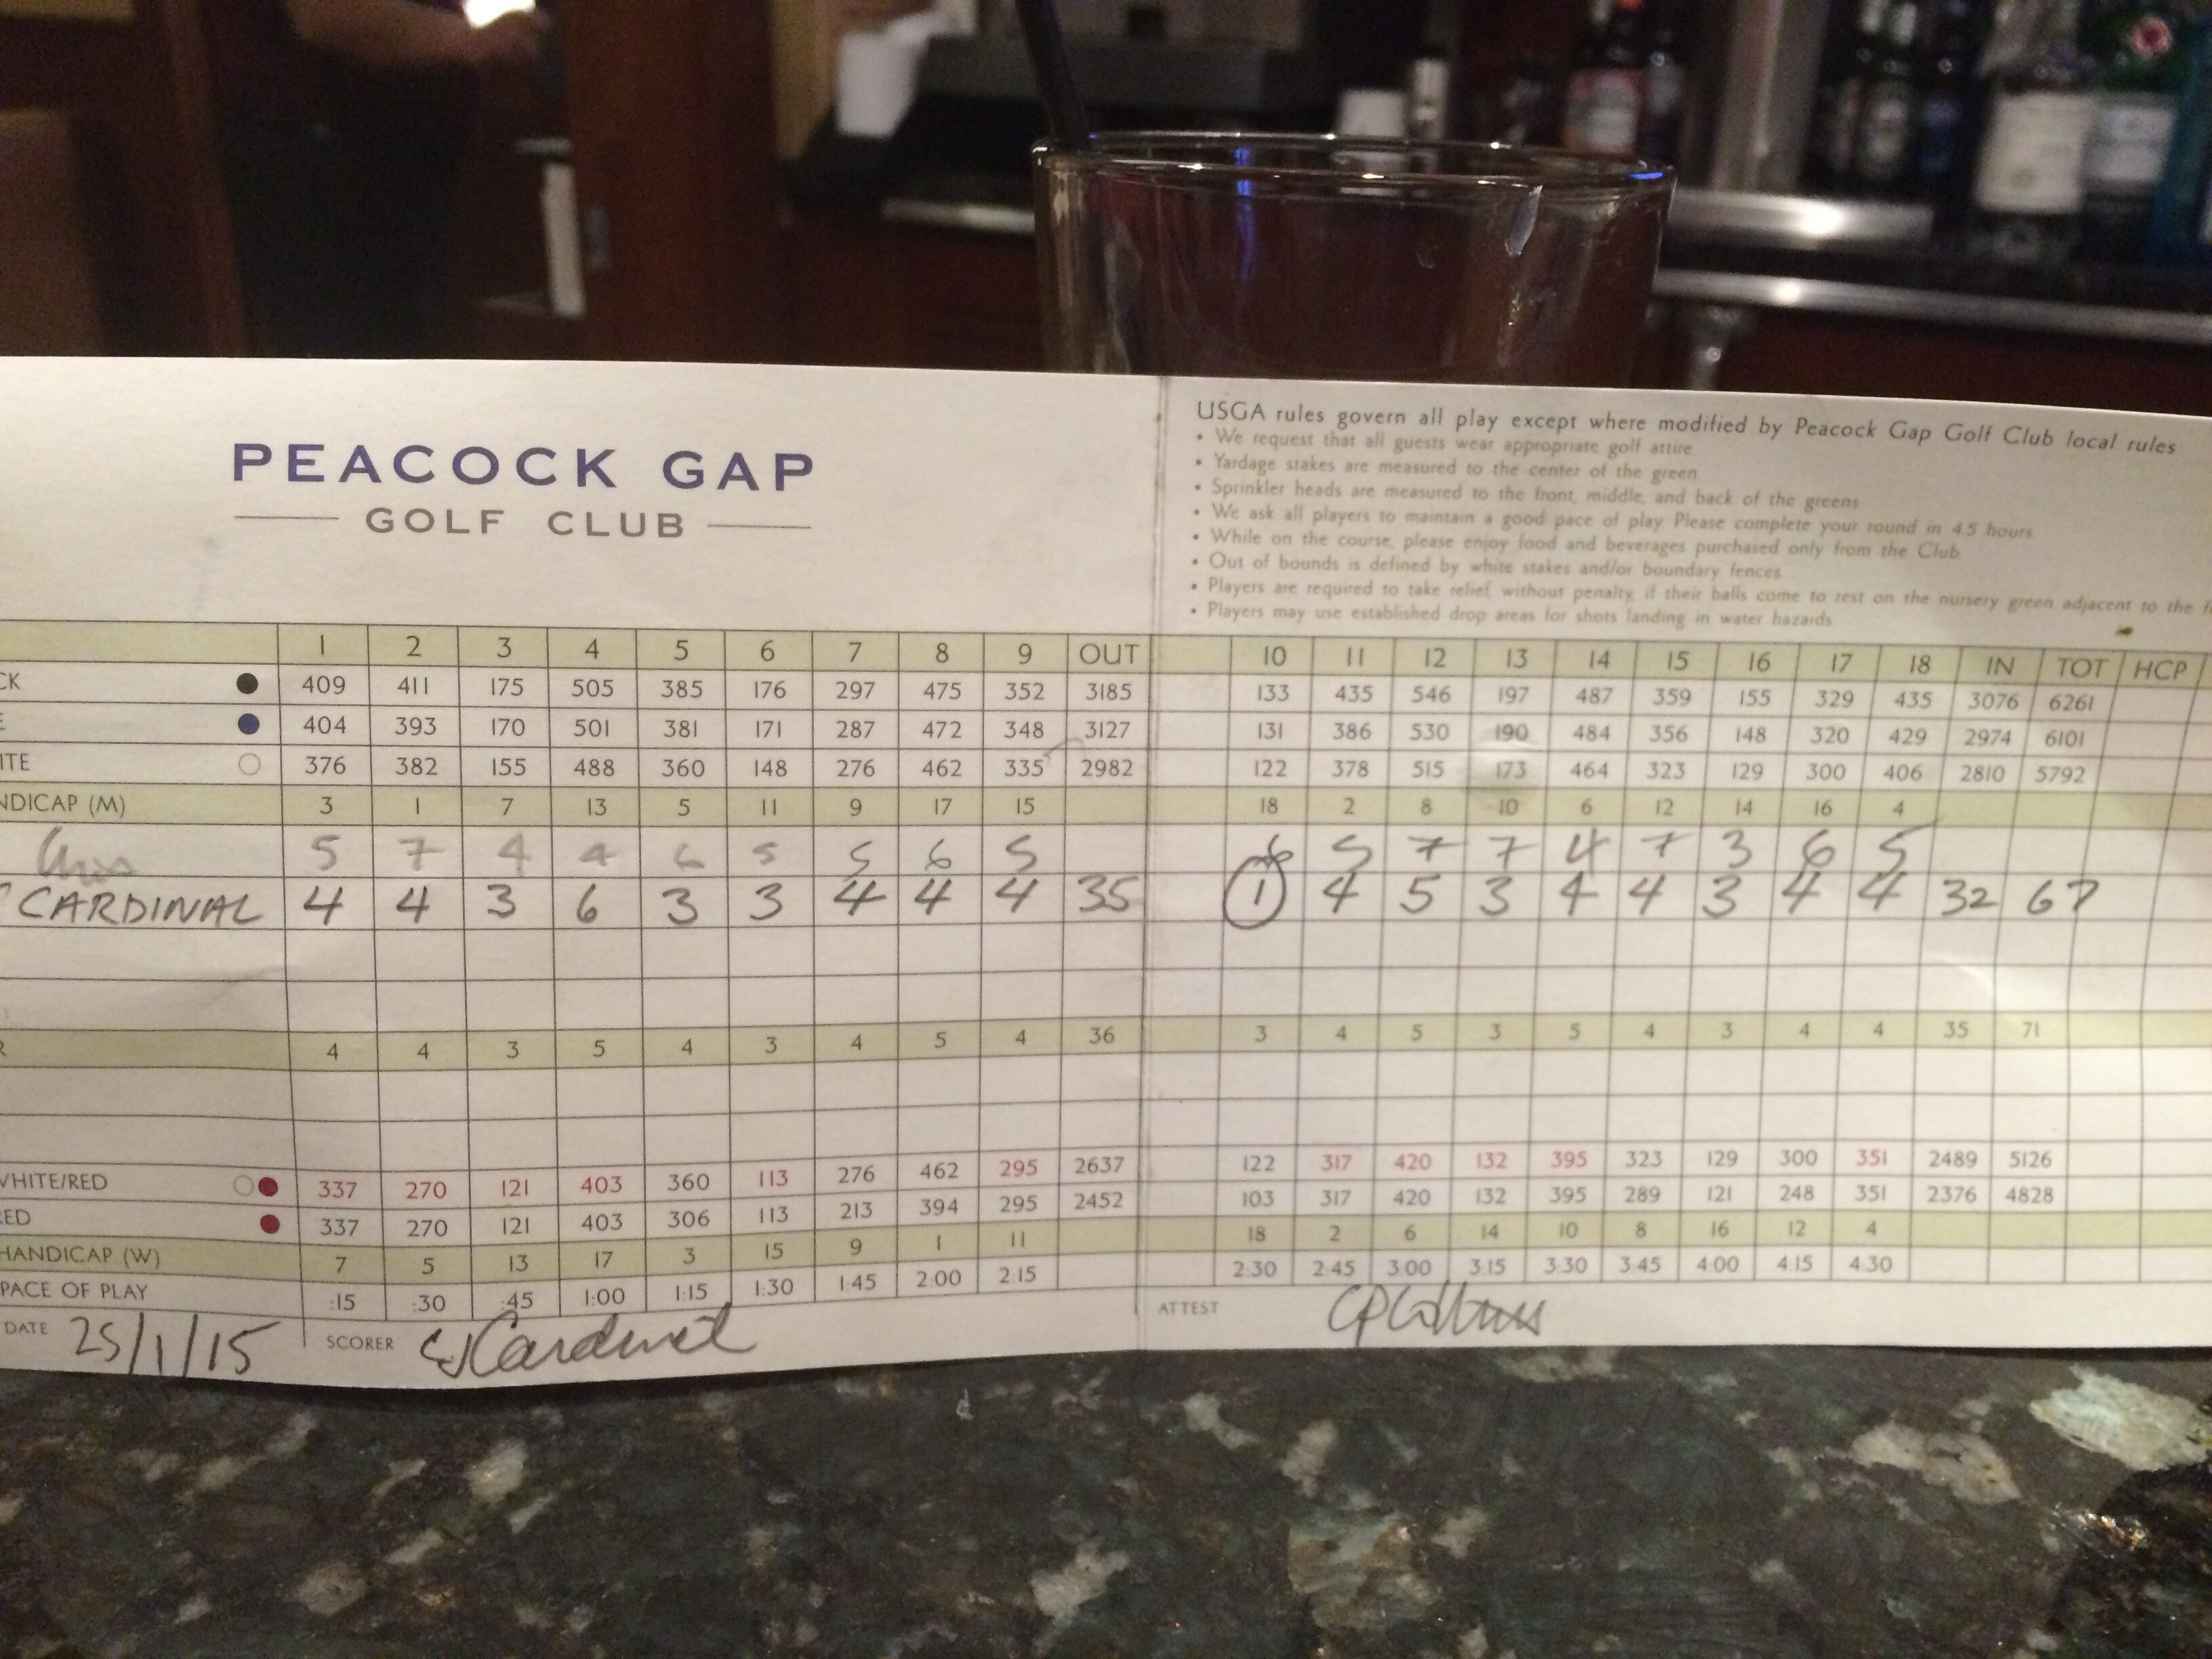 PEACOCK GAP
GOLF CLUB
USGA rules govern all play except where modified by Peacock Gap Golf Club local rules
• We request that all guests wear appropriate golf attire
• Yardage stakes are measured to the center of the green
• Sprinkler heads are measured to the front, middle, and back of the greens
• We ask all players to maintain a good pace of play Please complete your round in 4.5 hours
• While on the course, please enjoy food and beverages purchased only from the Club
• Out of bounds is defined by white stakes and/or boundary fences
• Players are required to take relief, without penalty, if their balls come to rest on the nursery green adjacent to the
• Players may use established drop areas for shots landing in water hazards
1 2 3 4 5 6 7 8 9 OUT 10 11 12 13 14 15 16 17 18 IN TOT HCP
CK 409 411 175 505 385 176 297 475 352 3185 133 435 546 197 487 359 155 329 435 3076 6261
E 404 393 170 501 381 171 287 472 348 3127 131 386 530 190 484 356 148 320 429 2974 6101
ITE 376 382 155 488 360 148 276 462 335 2982 122 378 515 173 464 323 129 300 406 2810 5792
NDICAP (M) 3 1 7 13 5 11 9 17 15 18 2 8 10 6 12 14 16 4
5 7 4 4 6 5 5 6 5 6 5 7 7 4 7 3 6 5
CARDINAL 4 4 3 6 3 3 4 4 4 35 1 4 5 3 4 4 3 4 4 32 67
R 4 4 3 5 4 3 4 5 4 36 3 4 5 3 5 4 3 4 4 35 71
WHITE/RED 337 270 121 403 360 113 276 462 295 2637 122 317 420 132 395 323 129 300 351 2489 5126
RED 337 270 121 403 306 113 213 394 295 2452 103 317 420 132 395 289 121 248 351 2376 4828
HANDICAP (W) 7 5 13 17 3 15 9 1 11 18 2 6 14 10 8 16 12 4
PACE OF PLAY :15 :30 :45 1:00 1:15 1:30 1:45 2:00 2:15 2:30 2:45 3:00 3:15 3:30 3:45 4:00 4:15 4:30
DATE 25/1/15 SCORER ATTEST